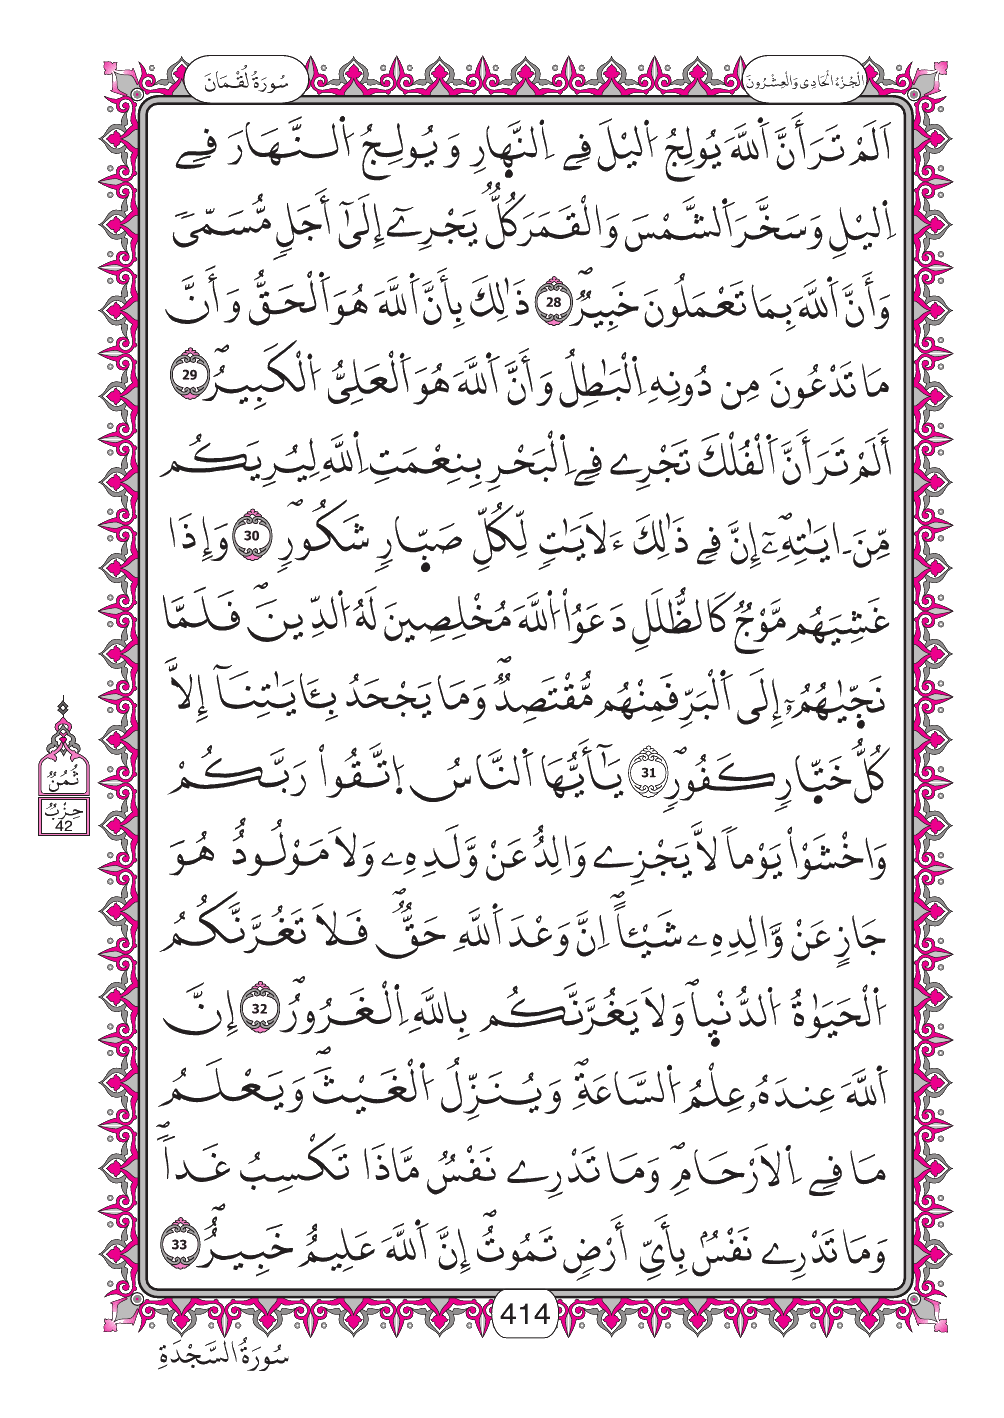 سُورَةُ لُقْمَانَ
اَلْجُزْءُ الْحَادِى وَالْعِشْرُونَ
اَلَمْ تَرَ أَنَّ اَ۬للَّهَ يُولِجُ اُ۬ليْلَ فِے اِ۬لنَّه۪ارِ وَيُولِجُ اُ۬لنَّهَارَ فِے
اِ۬ليْلِ وَسَخَّرَ اَ۬لشَّمْسَ وَالْقَمَرَ كُلّٞ يَجْرِےٓ إِلَىٰٓ أَجَلٖ مُّسَمّيٗ
وَأَنَّ اَ۬للَّهَ بِمَا تَعْمَلُونَ خَبِيرٞۖ 28 ذَٰلِكَ بِأَنَّ اَ۬للَّهَ هُوَ اَ۬لْحَقُّ وَأَنَّ
مَا تَدْعُونَ مِن دُونِهِ اِ۬لْبَٰطِلُ وَأَنَّ اَ۬للَّهَ هُوَ اَ۬لْعَلِيُّ اُ۬لْكَبِيرُۖ 29
أَلَمْ تَرَ أَنَّ اَ۬لْفُلْكَ تَجْرِے فِے اِ۬لْبَحْرِ بِنِعْمَتِ اِ۬للَّهِ لِيُرِيَكُم
مِّنَ اَيَٰتِهِۦٓۖ إِنَّ فِے ذَٰلِكَ ءَلَايَٰتٖ لِّكُلِّ صَبّ۪ارٖ شَكُورٖۖ 30 وَإِذَا
غَشِيَهُم مَّوْجٞ كَالظُّلَلِ دَعَوُاْ اُ۬للَّهَ مُخْلِصِينَ لَهُ اُ۬لدِّينَۖ فَلَمَّا
نَجّ۪يٰهُمُۥٓ إِلَى اَ۬لْبَرِّ فَمِنْهُم مُّقْتَصِدٞۖ وَمَا يَجْحَدُ بِـَٔايَٰتِنَآ إِلَّا
كُلُّ خَتّ۪ارٖ كَفُورٖۖ 31 يَٰٓأَيُّهَا اَ۬لنَّاسُ اُ۪تَّقُواْ رَبَّكُمْ
وَاخْشَوْاْ يَوْماٗ لَّا يَجْزِے وَالِدٌ عَنْ وَّلَدِهِۦ وَلَا مَوْلُودٌ هُوَ
جَازٍ عَنْ وَّالِدِهِۦ شَيْـٔاًۖ اِنَّ وَعْدَ اَ۬للَّهِ حَقّٞۖ فَلَا تَغُرَّنَّكُمُ
اُ۬لْحَيَوٰةُ اُ۬لدُّنْي۪اۖ وَلَا يَغُرَّنَّكُم بِاللَّهِ اِ۬لْغَرُورُۖ 32 إِنَّ
اَ۬للَّهَ عِندَهُۥ عِلْمُ اُ۬لسَّاعَةِۖ وَيُنَزِّلُ اُ۬لْغَيْثَۖ وَيَعْلَمُ
مَا فِے اِ۬لَارْحَامِۖ وَمَا تَدْرِے نَفْسٞ مَّاذَا تَكْسِبُ غَداٗۖ
وَمَا تَدْرِے نَفْسُۢ بِأَيِّ أَرْضٖ تَمُوتُۖ إِنَّ اَ۬للَّهَ عَلِيمٌ خَبِيرٞۖ 33
ثُمُنٌ
حِزْبٌ
42
414
سُورَةُ السَّجْدَةِ